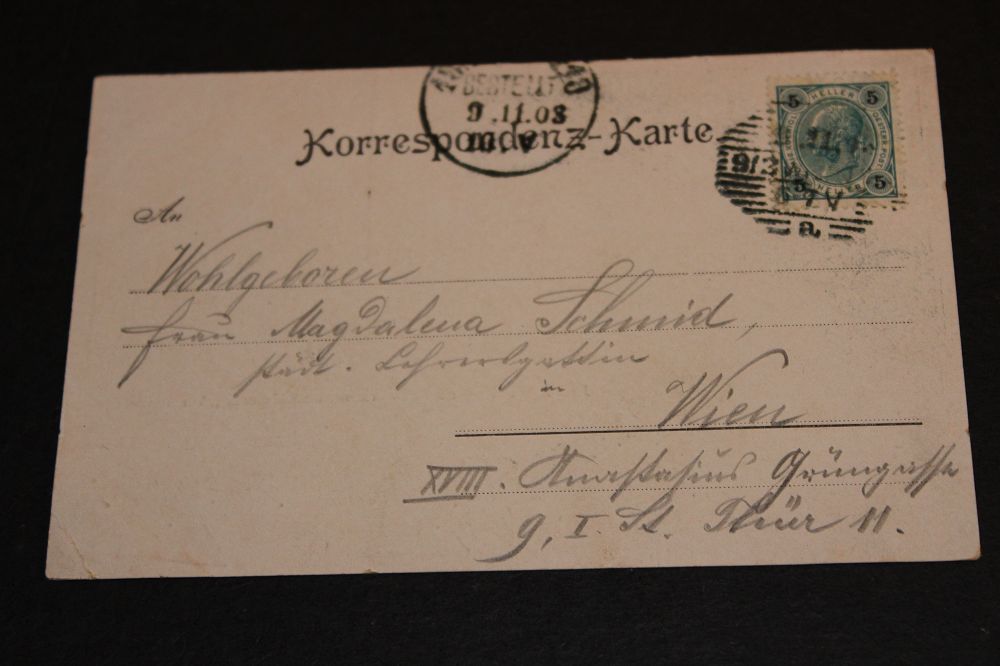 BESTELLT
9.11.03
Korrespondenz-Karte
5 HELLER 5
5 5
a.
An
Wohlgeboren
Frau Magdalena Schmid,
städt. Lehrersgattin
in
Wien
XVIII. Anastasius Grüngasse
9, I. St. Thür 11.